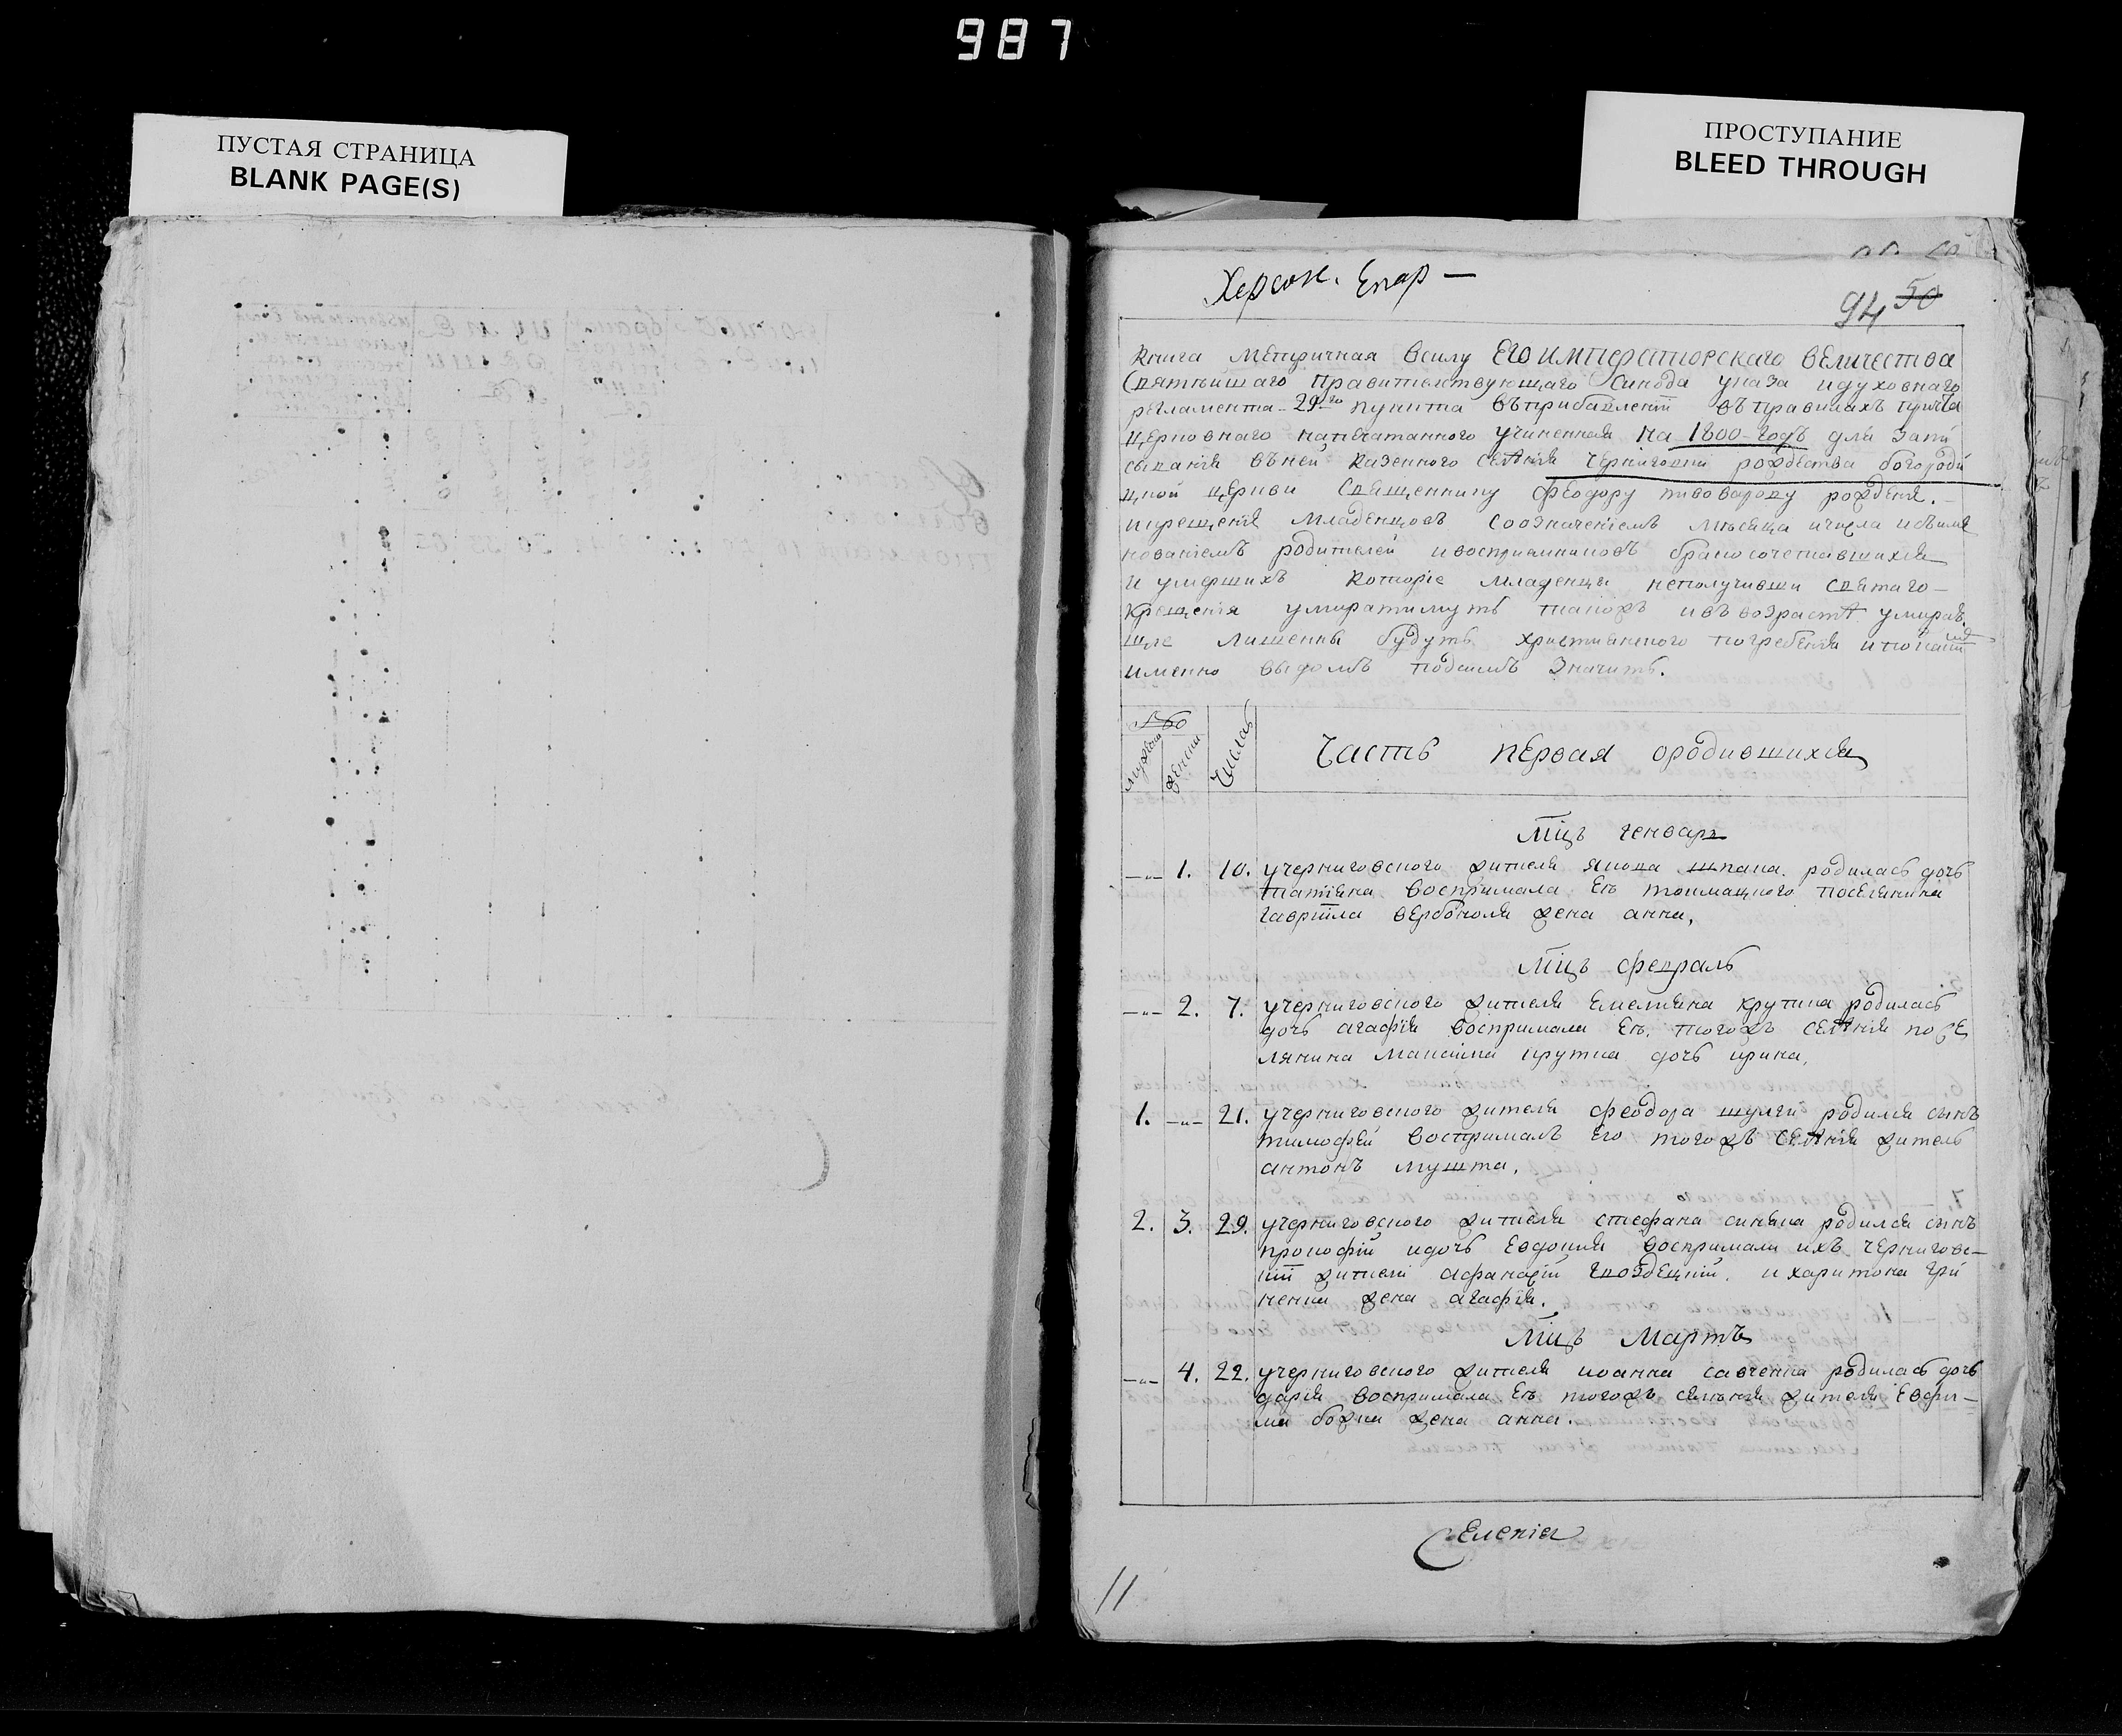 987
ПУСТАЯ СТРАНИЦА
BLANK PAGE(S)
ПРОСТУПАНИЕ
BLEED THROUGH
Херсон. Епар —
94 50
Книга метричная всилу ЕГО ИМПЕРАТОРСКАГО ВЕЛИЧЕСТВА
Святѣишаго правителствующаго Синода указа идуховнаго
регламента 29го пункта въприбавленіи въправилахъ причта
церковнаго напечатанного учиненная на 1800 годъ для запи
сыванія въней казенного селѣнія Черниговки рождества богороди
цной церкви Священнику феодору пивоварову рожденія.
икрещенія младенцовъ Соозначеніемъ мѣсяца ичисла исъиме
нованіемъ родителей ивосприемниковъ бракосочетавшихся
и умершихъ которіе младенцы неполучивши Святаго
крещенія умиратимутъ такожъ ивъвозрастѣ умирав
шіе лишенны будутъ христианского погребенія ипо
именно выдомъ подаимъ значить.
мужеска
женска
Числа
Часть первая ородившихся
Мцъ генварь
1. 10. учерниговского жителя якова шпака. родилась дочъ
татіяна воспримала Ея токмацкого поселянина
гавріила верби жена анна,
Мцъ февраль
2. 7. учерниговского жителя Емелияна крутика родилась
дочъ агафія воспримала Ея. тогожъ селѣнія посе
лянина максима крутка дочъ ирина,
1. 21. учерниговского жителя феодора шулги родился сынъ
тимофей воспрималъ Его тогожъ селѣнія житель
антонъ мушта,
2. 3. 29. учерниговского жителя стефана синяка родился сынъ
прокофій идочъ Евдокия воспримали ихъ чернигов-
кіи жители афанасій гвоздецкій. и харитона гри
ненка жена агафія.
Мцъ Мартъ
4. 22. учерниговского жителя иоанна савченка родилась дочъ
дарія воспримала Ея тогожъ селѣнія жителя Евфи-
ма божка жена анна.
Селенія
11